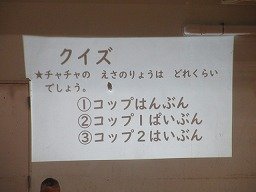 クイズ
★チャチャの えさのりょうは どれくらい
でしょう。
①コップはんぶん
②コップ1ぱいぶん
③コップ2はいぶん